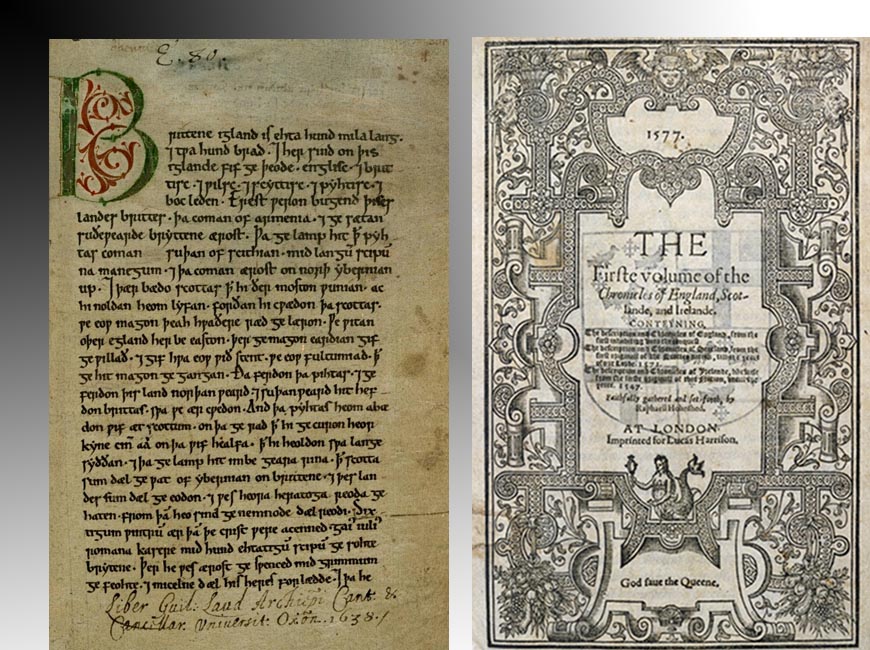 E. 80.
Brittene igland is ehta hund mila lang.
⁊ tƿa hund brad. ⁊ her sind on þis
iglande fif ge þeode. englisc. ⁊ brit
tisc. ⁊ ƿilsc. ⁊ scyttisc. ⁊ pyhtisc. ⁊
boc leden. Erest ƿeron bugend þises
landes brittes. þa coman of armenia. ⁊ ge sætan
suðeƿearde bryttene ærost. Þa ge lamp hit þ pyh
tas coman suþan of scithian. mid langū scipū
na manegum. ⁊ þa coman ærost on norþ ybernian
up. ⁊ þær bædo scottas þ hi ðer moston ƿunian. ac
hi noldan heom lyfan. forðan hi cƿædon þa scottas.
ƿe eoƿ magon þeah hƿaðere ræd ge læron. Ƿe ƿitan
oþer egland her be easton. þer ge magon eardian gif
ge ƿillað. ⁊ gif hƿa eoƿ ƿið stent. ƿe eoƿ fultumiað. þ
ge hit magon ge gangan. Ða ferdon þa pihtas. ⁊ ge
ferdon þis land norþan ƿeard. ⁊ suþan ƿeard hit hef
don brittas. sƿa ƿe ær cƿedon. And þa pyhtas heom abæ
don ƿif æt scottum. on þa ge rad þ hi ge curon heor
kyne cin aa on þa ƿif healfa. þ hi heoldon sƿa lange
syððan. ⁊ þa ge lamp hit imbe geara rina. þ scotta
sum dæl ge ƿat of ybernian on brittene. ⁊ þes lan
des sum dæl ge eodon. ⁊ ƿes heora heratoga reoda ge
haten. from þā heo sind ge nemnode dæl reodi. Six
tigum ƿintrū ær þā þe crist ƿere acenned gai iuli
romana kasere mid hund ehtatigū scipū ge sohte
brytene. Þer he ƿes ærost ge sƿenced mid grimmum
ge feohte. ⁊ micelne dæl his heres forlædde. ⁊ þa he
Liber Guil: Laud Archiepi Cant. &
Cancellar. Universit: Oxon. 1638.
1577.
THE
Firste volume of the
Chronicles of England, Scot-
lande, and Irelande.
CONTEYNING,
The description and Chronicles of England, from the
first inhabiting vnto the conquest
The description and Chronicles of Scotland, from the
first originall of the Scottes nation, till the yeare
of our Lorde. 1571.
The description and Chronicles of Yrelande, likewise
from the firste originall of that Nation, vntill the
yeare. 1547.
Faithfully gathered and set forth, by
Raphaell Holinshed.
AT LONDON,
Imprinted for Lucas Harrison.
God saue the Queene.